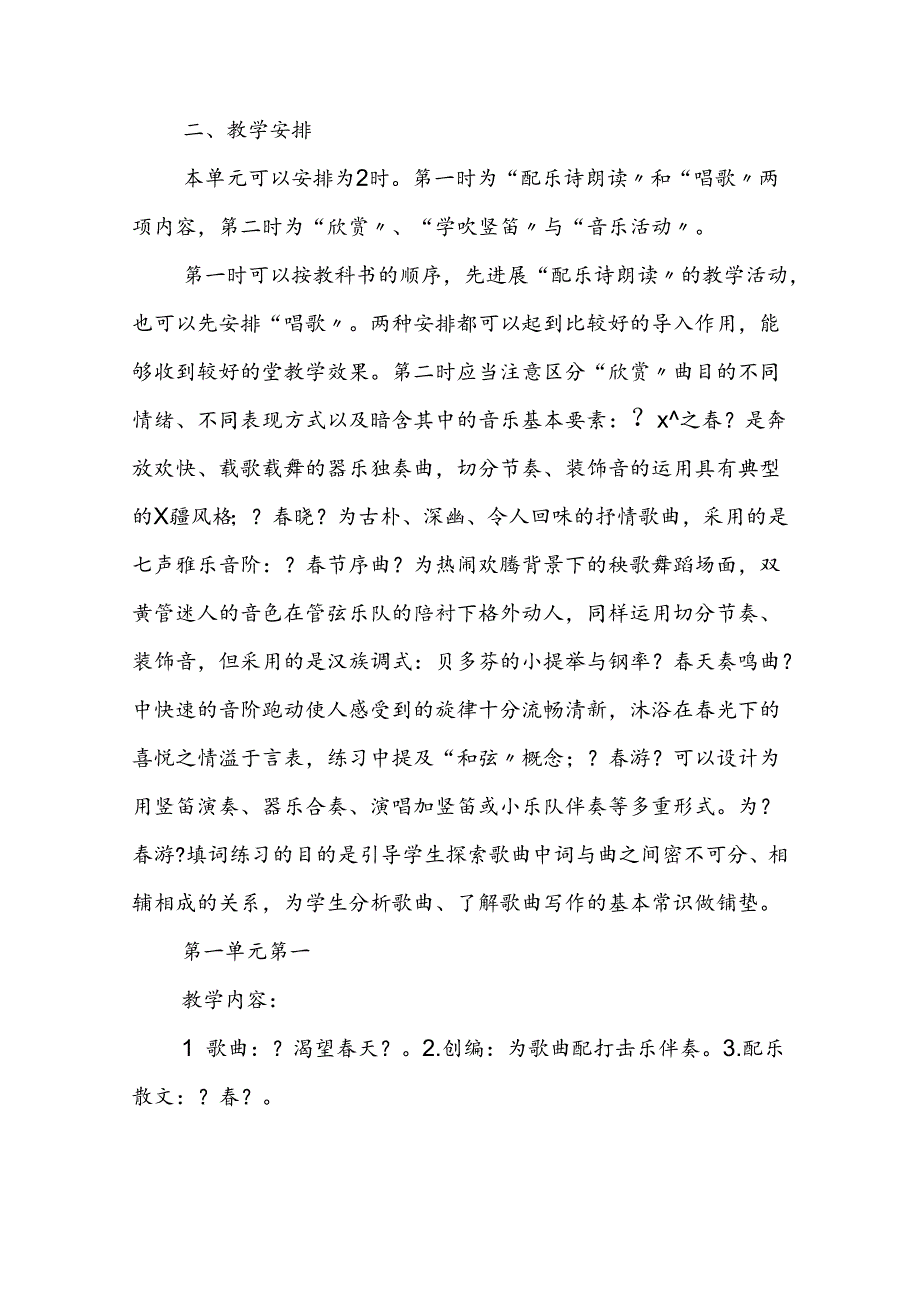 二、教学安排
本单元可以安排为2时。第一时为“配乐诗朗读〃和“唱歌〃两
项内容，第二时为“欣赏〃、“学吹竖笛〃与“音乐活动〃。
第一时可以按教科书的顺序，先进展“配乐诗朗读〃的教学活动，
也可以先安排“唱歌〃。两种安排都可以起到比较好的导入作用，能
够收到较好的堂教学效果。第二时应当注意区分“欣赏〃曲目的不同
情绪、不同表现方式以及暗含其中的音乐基本要素：？x^之春？是奔
放欢快、载歌载舞的器乐独奏曲，切分节奏、装饰音的运用具有典型
的X疆风格；？春晓？为古朴、深幽、令人回味的抒情歌曲，采用的是
七声雅乐音阶：？春节序曲？为热闹欢腾背景下的秧歌舞蹈场面，双
黄管迷人的音色在管弦乐队的陪衬下格外动人，同样运用切分节奏、
装饰音，但采用的是汉族调式：贝多芬的小提举与钢率？春天奏鸣曲？
中快速的音阶跑动使人感受到的旋律十分流畅清新，沐浴在春光下的
喜悦之情溢于言表，练习中提及“和弦〃概念；？春游？可以设计为
用竖笛演奏、器乐合奏、演唱加竖笛或小乐队伴奏等多重形式。为？
春游?填词练习的目的是引导学生探索歌曲中词与曲之间密不可分、相
辅相成的关系，为学生分析歌曲、了解歌曲写作的基本常识做铺垫。
第一单元第一
教学内容：
1 歌曲：？渴望春天？。2.创编：为歌曲配打击乐伴奏。3.配乐
散文：？春？。